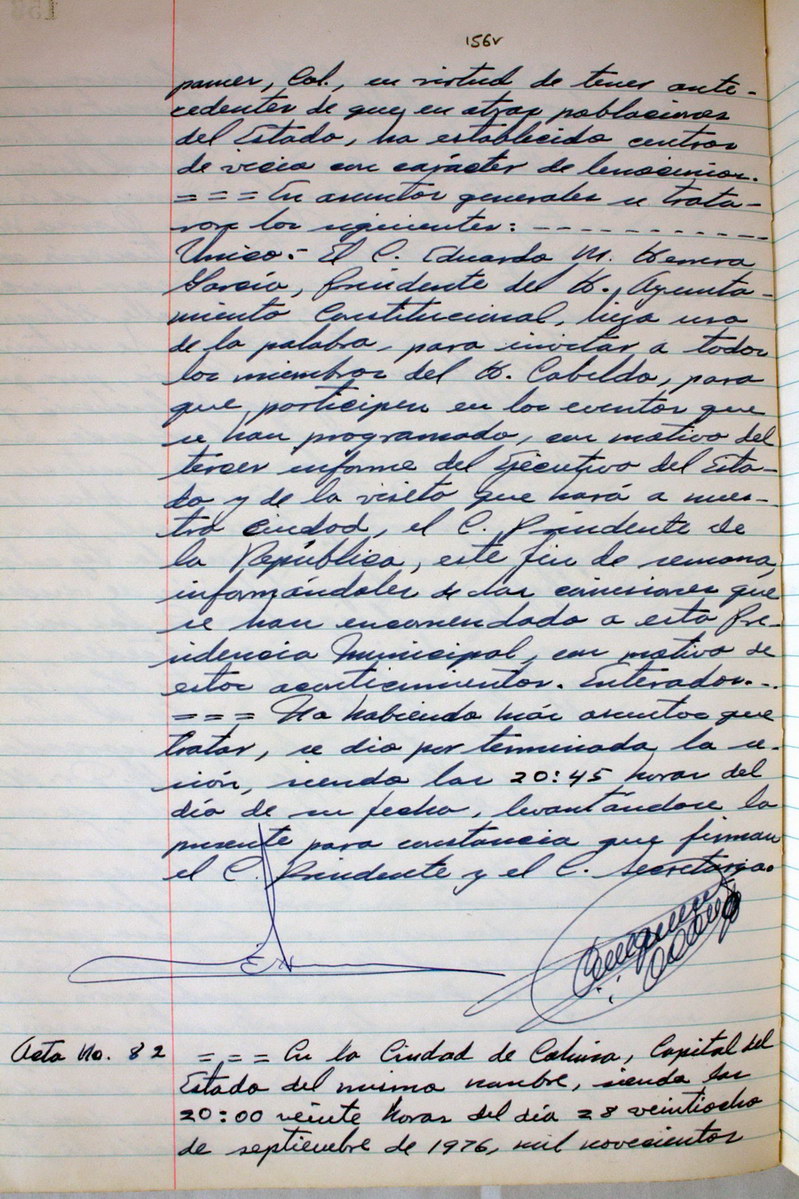 156v
pamer, Col., en virtud de tener ante-
cedentes de que en otras poblaciones
del Estado, ha establecido centros
de vicio con carácter de lenocinios.
= = = En asuntos generales se trata-
ron los siguientes: - - - - - - - - - - -
Unico:- El C. Eduardo M. Herrera
García, Presidente del H. Ayunta-
miento Constitucional, hizo uso
de la palabra, para invitar a todos
los miembros del H. Cabildo, para
que participen en los eventos que
se han programado, con motivo del
tercer informe del Ejecutivo del Esta-
do y de la visita que hará a nues-
tra ciudad, el C. Presidente de
la República, este fin de semana,
informándoles de las comisiones que
se han encomendado a esta Pre-
sidencia Municipal, con motivo de
estos acontecimientos. Enterados.- -
= = = No habiendo más asuntos que
tratar, se dio por terminada la se-
sión, siendo las 20:45 horas del
día de su fecha, levantándose la
presente para constancia que firman
el C. Presidente y el C. Secretario.
Acta No. 82 = = = En la Ciudad de Colima, Capital del
Estado del mismo nombre, siendo las
20:00 veinte horas del día 28 veintiocho
de septiembre de 1976, mil novecientos